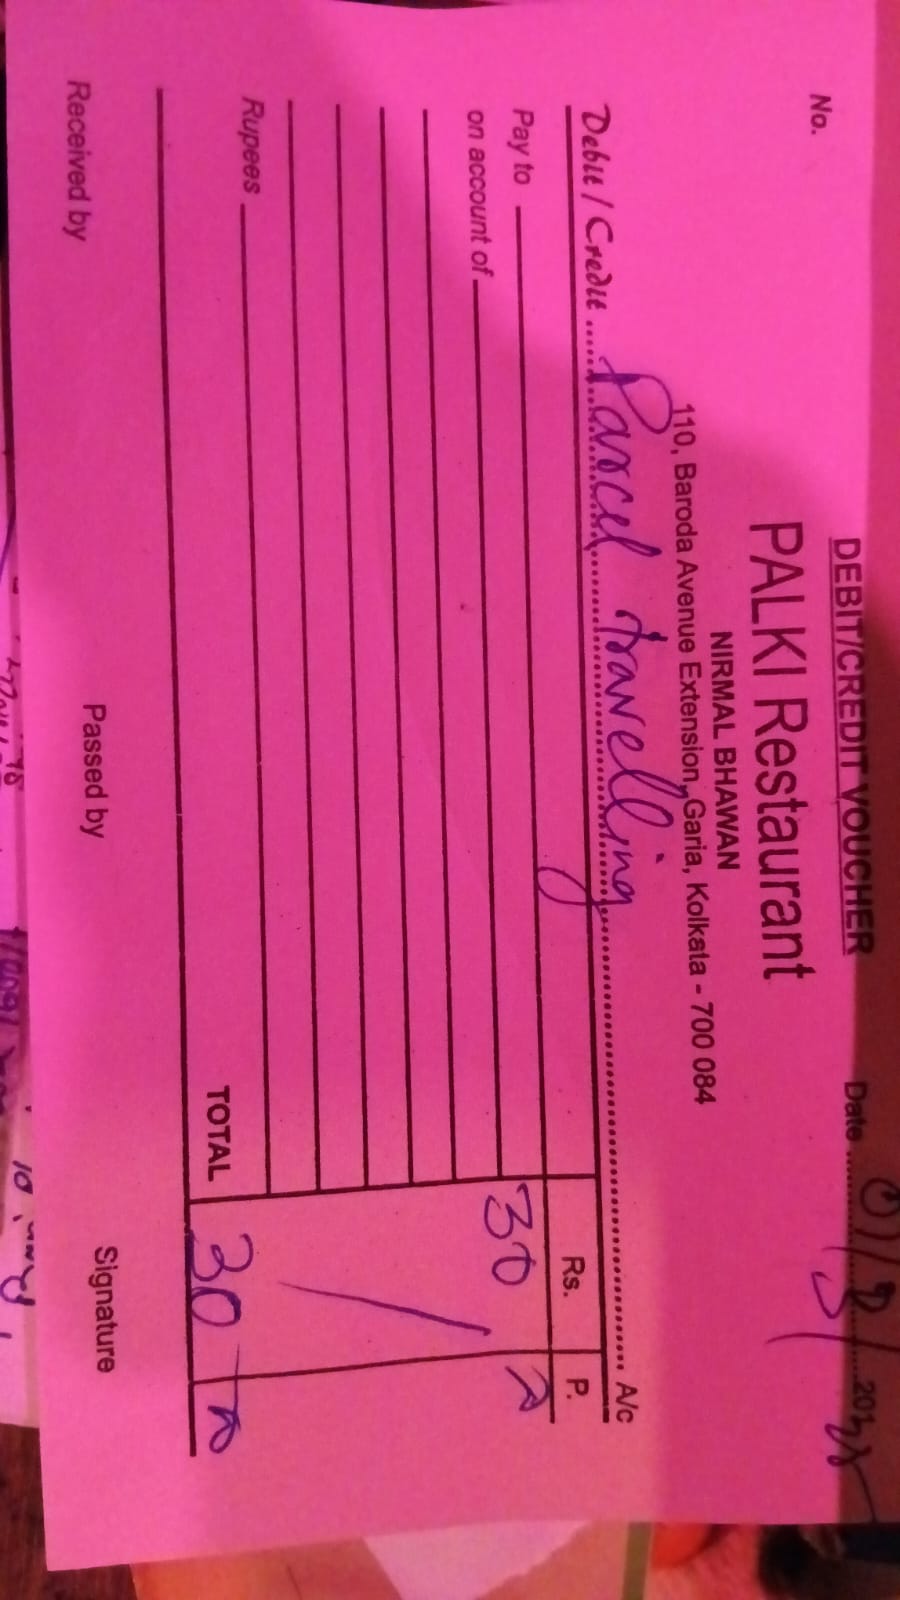 DEBIT/CREDIT VOUCHER
PALKI Restaurant
NIRMAL BHAWAN
110, Baroda Avenue Extension, Garia, Kolkata - 700 084
No.
Date
Debit / Credit Parcel travelling A/c
Rs. P.
Pay to
on account of 30
Rupees
TOTAL 30
Received by Passed by Signature